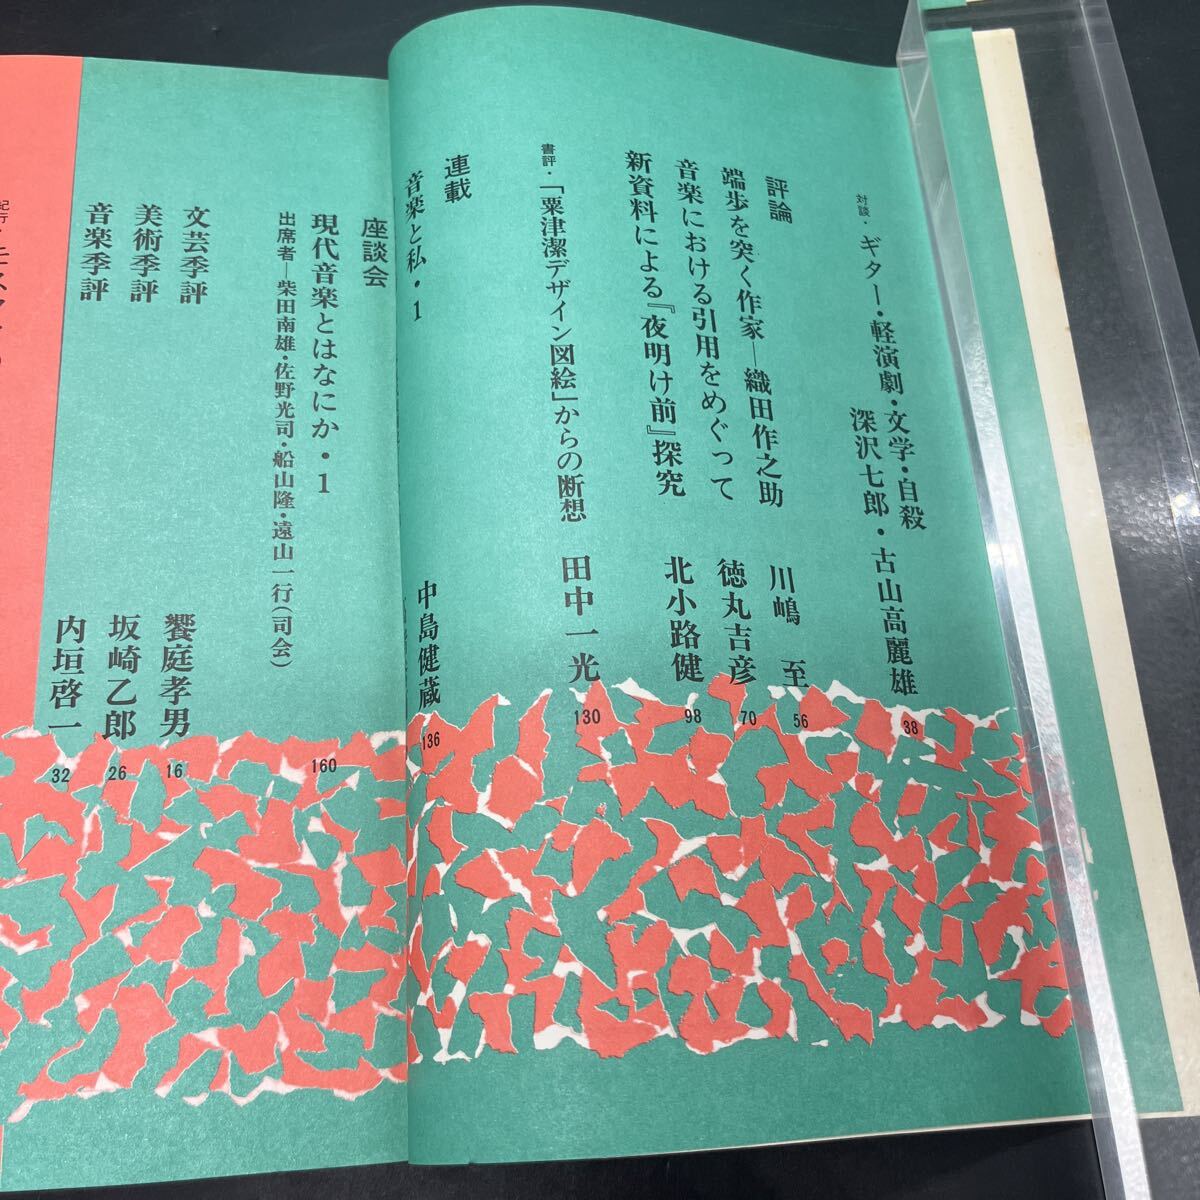 対談・ギター・軽演劇・文学・自殺
深沢七郎・古山高麗雄 38
評論
端歩を突く作家―織田作之助 川嶋 至 56
音楽における引用をめぐって 徳丸吉彦 70
新資料による『夜明け前』探究 北小路健 98
書評・「粟津潔デザイン図絵」からの断想 田中一光 130
連載
音楽と私・1 中島健蔵 136
座談会
現代音楽とはなにか・1 160
出席者―柴田南雄・佐野光司・船山隆・遠山一行(司会)
文芸季評 饗庭孝男 16
美術季評 坂崎乙郎 26
音楽季評 内垣啓一 32
紀行・